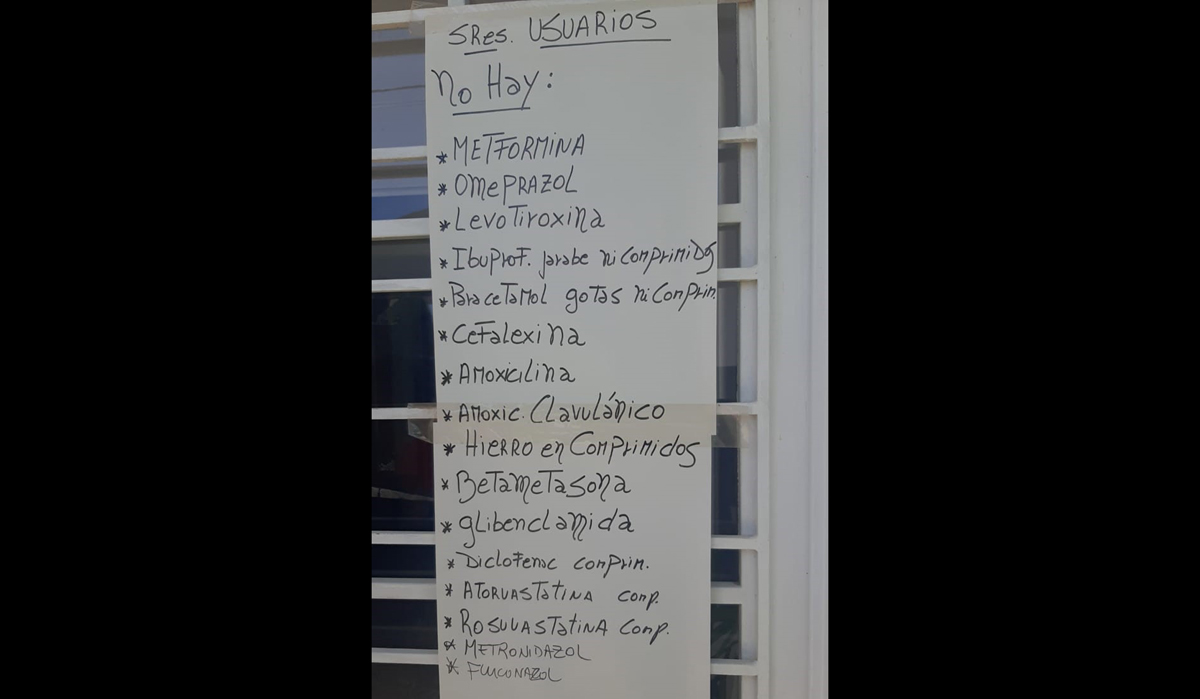 SRes. USUARIOS
No Hay:
* METFORMINA
* OMePRAZOL
* LevoTiroxina
* IbuproF. jarabe ni comprimidos
* ParaceTaMol gotas ni comprim.
* CeFalexina
* AMoxicilina
* AMoxic. Clavulánico
* HieRRO en Comprimidos
* BeTameTasona
* glibenclamida
* DicloFenac comprim.
* ATORVASTaTINA comp.
* ROSUVASTaTINA comp.
* METRONIDAZOL
* FLUCONAZOL